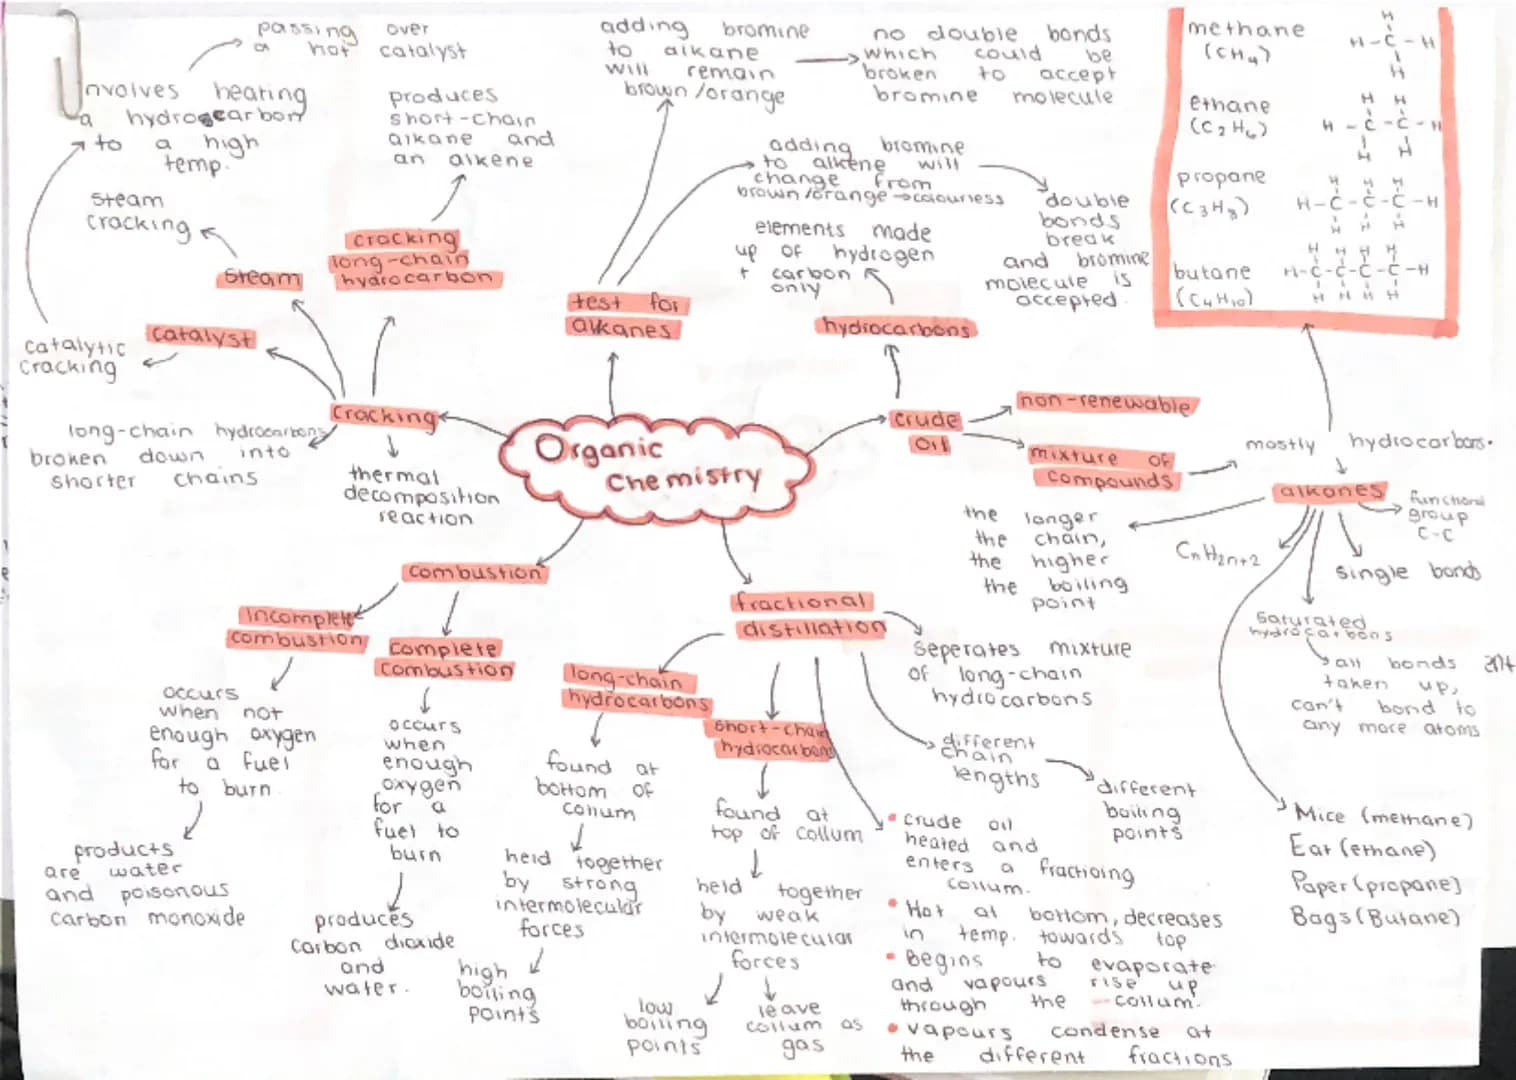 Organic
Chemistry
cracking
long-chain hydrocarbons
broken down into
shorter chains
thermal
decomposition
reaction
catalyst
catalytic
cracking
involves heating
a hydrogecarbon
to a high
temp.
passing over
a hot catalyst
steam
steam
cracking
cracking
long-chain
hydrocarbon
produces
short-chain
alkane and
an alkene
test for
alkanes
adding bromine
to alkane
will remain
brown/orange
no double bonds
which could be
broken to accept
bromine molecule
adding bromine
to alkene will
change from
brown/orange→colourless
double
bonds
break
and bromine
molecule is
accepted.
crude
oil
hydrocarbons
elements made
up of hydrogen
+ carbon
only
non-renewable
mixture of
compounds
mostly hydrocarbons.
alkanes
functional
group
C-C
single bonds
saturated
hydrocarbons
all bonds
taken up,
can't bond to
any more atoms
CnH2n+2
the longer
the chain,
the higher
the boiling
point
Mice (methane)
Eat (ethane)
Paper (propane)
Bags (Butane)
methane
(CH4)
H
H-C-H
H
ethane
(C2H6)
H H
H-C-C-H
H H
propane
(C3H8)
H H H
H-C-C-C-H
H H H
butane
(C4H10)
H H H H
H-C-C-C-C-H
H H H H
combustion
incomplete
combustion
occurs
when not
enough oxygen
for a fuel
to burn.
products
are water
and poisonous
carbon monoxide
complete
combustion
occurs
when
enough
oxygen
for a
fuel to
burn
produces
carbon dioxide
and
water.
fractional
distillation
long-chain
hydrocarbons
found at
bottom of
collum
held together
by strong
intermolecular
forces
high
boiling
points
short-chain
hydrocarbons
found at
top of collum
held together
by weak
intermolecular
forces
low
boiling
points
leave
collum as
gas
seperates mixture
of long-chain
hydrocarbons
different
chain
lengths
different
boiling
points
• crude oil
heated and
enters a fractioing
collum.
• Hot at bottom, decreases
in temp. towards top
• Begins to evaporate
and vapours rise up
through the collum.
• vapours condense at
the different fractions